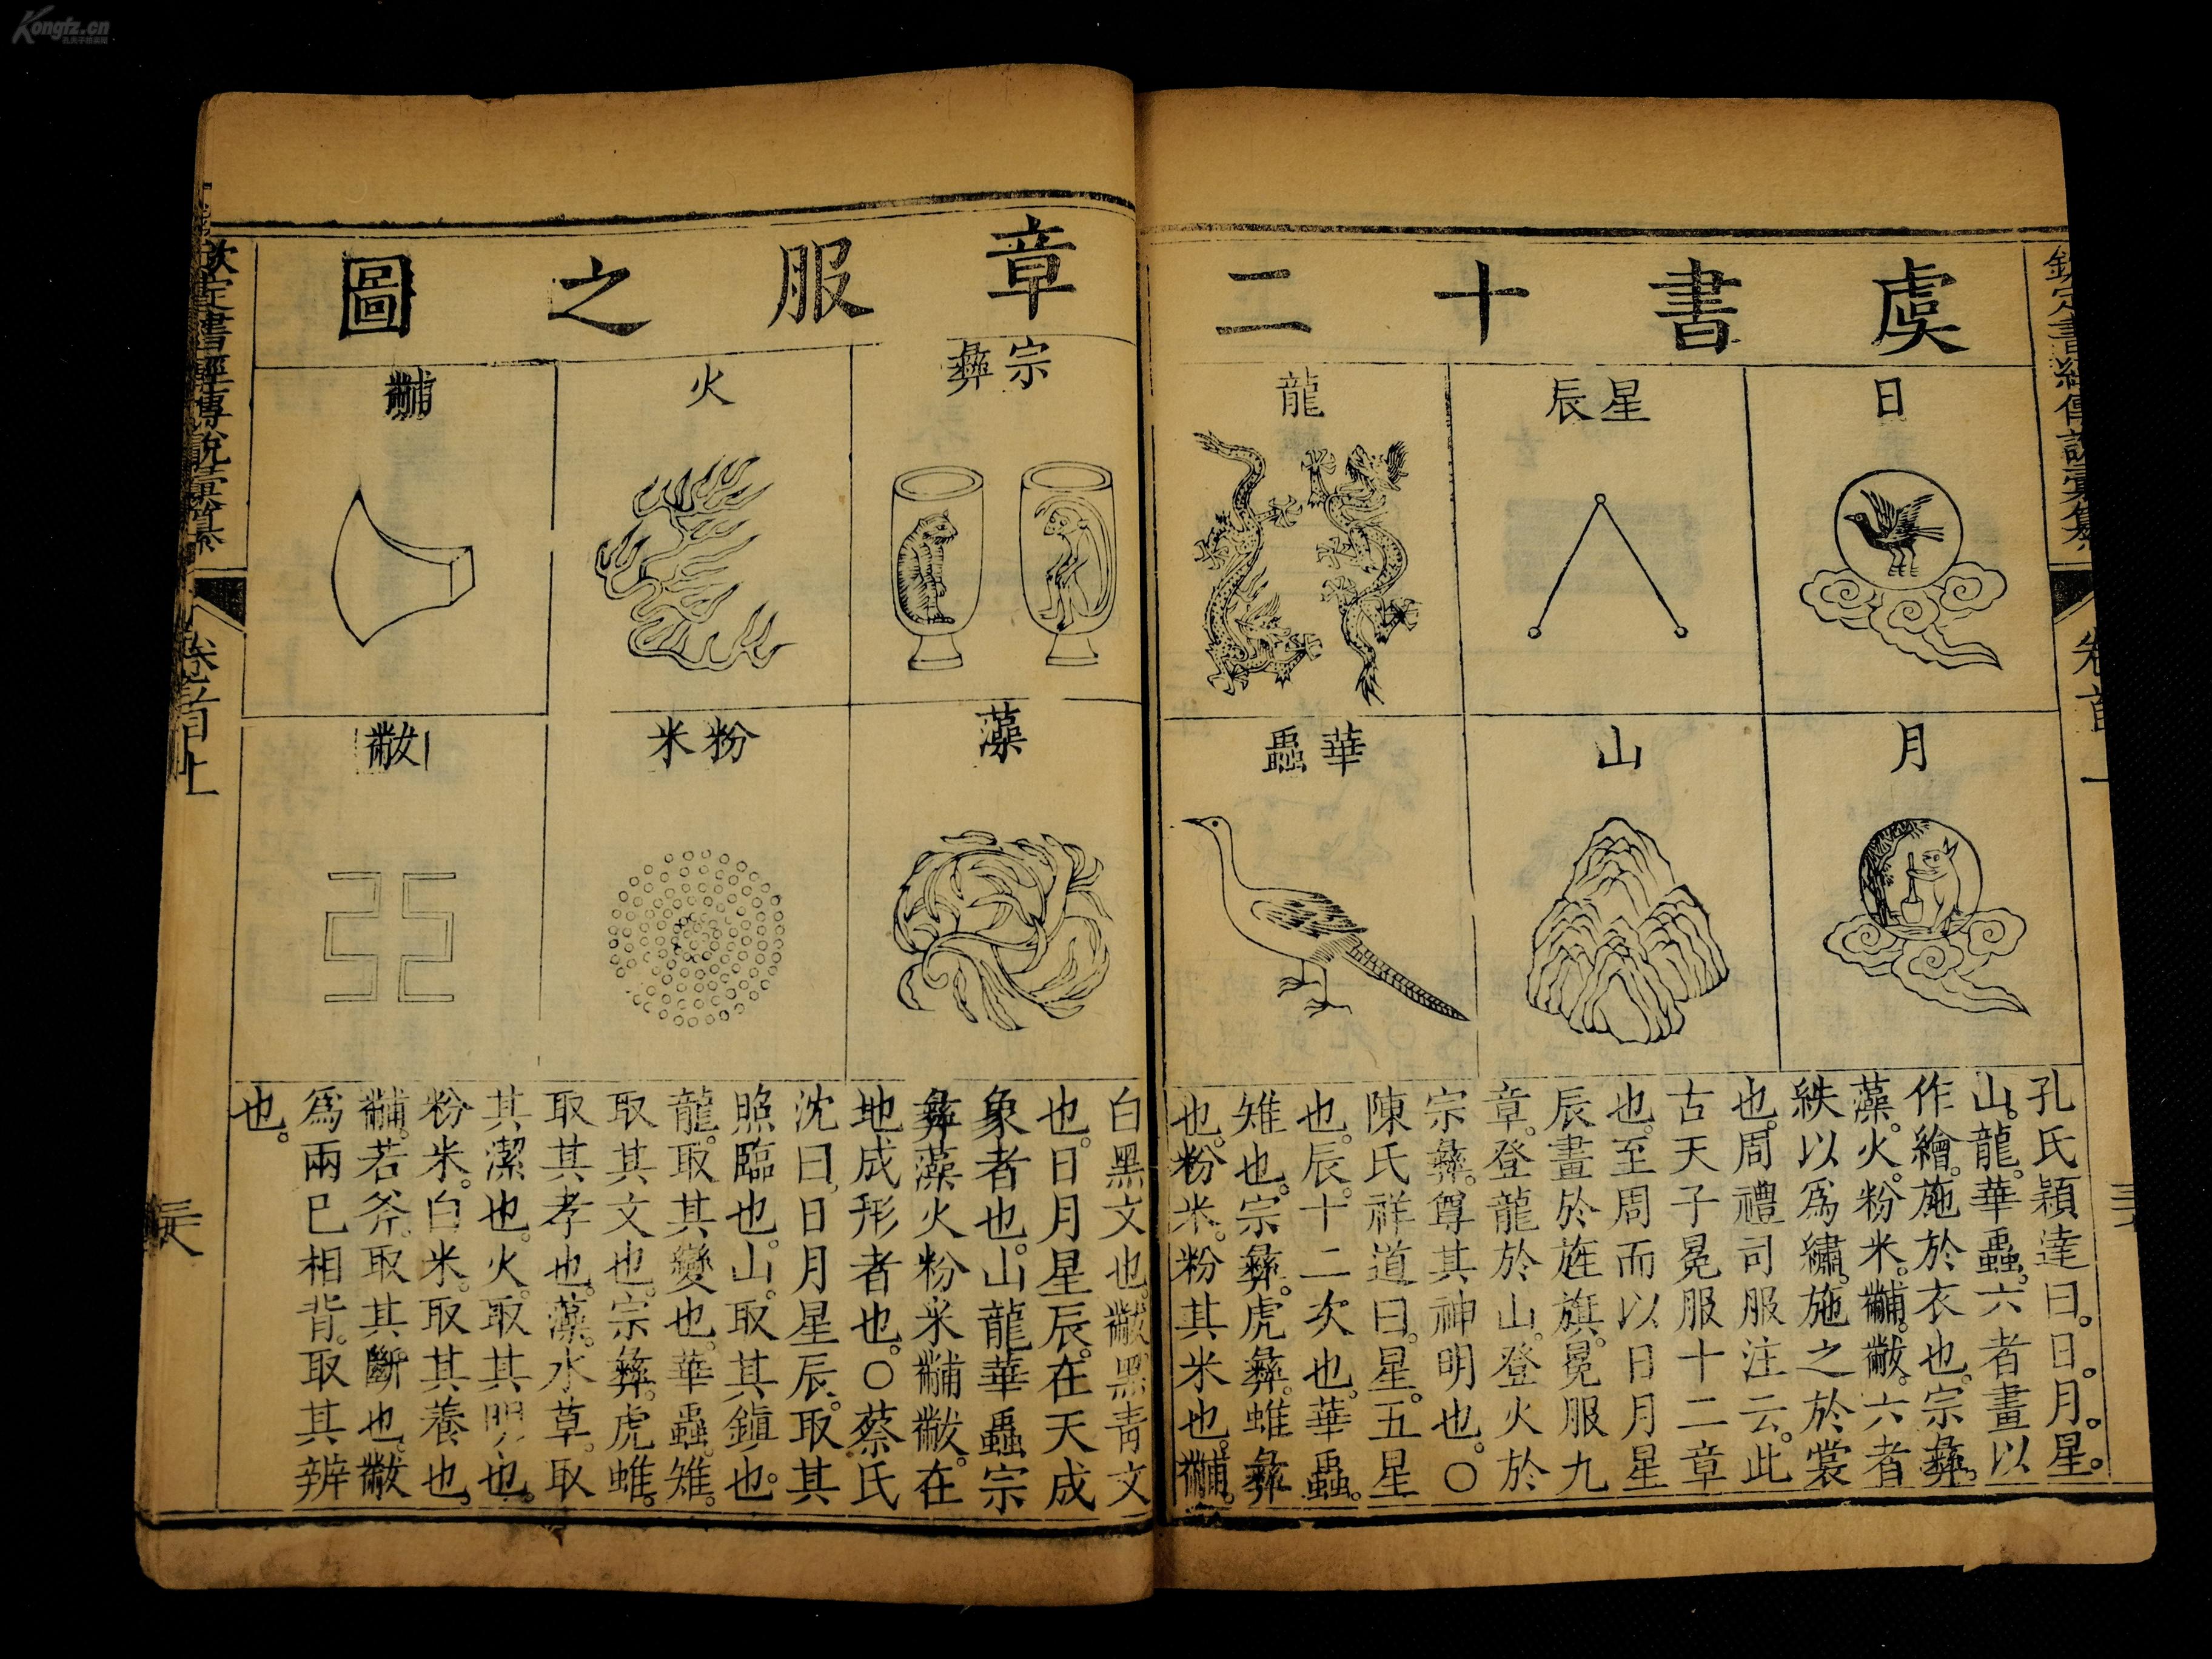 Kongfz.cn
孔夫子旧书网
欽定書經傳說彙纂
卷首上
虞書十二
日
月
星辰
山
龍
華蟲
孔氏穎達曰。日。月。星。
山。龍。華蟲。六者畫以
作繪。施於衣也。宗彝。
藻。火。粉米。黼。黻。六者
紩以爲繡。施之於裳
也。周禮司服注云。此
古天子冕服十二章
也。至周而以日月星
辰畫於旌旗。冕服九
章。登龍於山。登火於
宗彝。尊其神明也。〇
陳氏祥道曰。星。五星
也。辰。十二次也。華蟲。
雉也。宗彝。虎彝。蜼彝
也。粉米。粉其米也。黼。
章服之圖
宗彝
藻
火
粉米
黼
黻
白黑文也。黻。黑青文
也。日月星辰。在天成
象者也。山龍華蟲宗
彝藻火粉米黼黻。在
地成形者也。〇蔡氏
沈曰。日月星辰。取其
照臨也。山。取其鎮也。
龍。取其變也。華蟲。雉。
取其文也。宗彝。虎蜼。
取其孝也。藻。水草。取
其潔也。火。取其明也。
粉米。白米。取其養也。
黼。若斧。取其斷也。黻
爲兩已相背。取其辨
也。
欽定書經傳說彙纂
卷首上